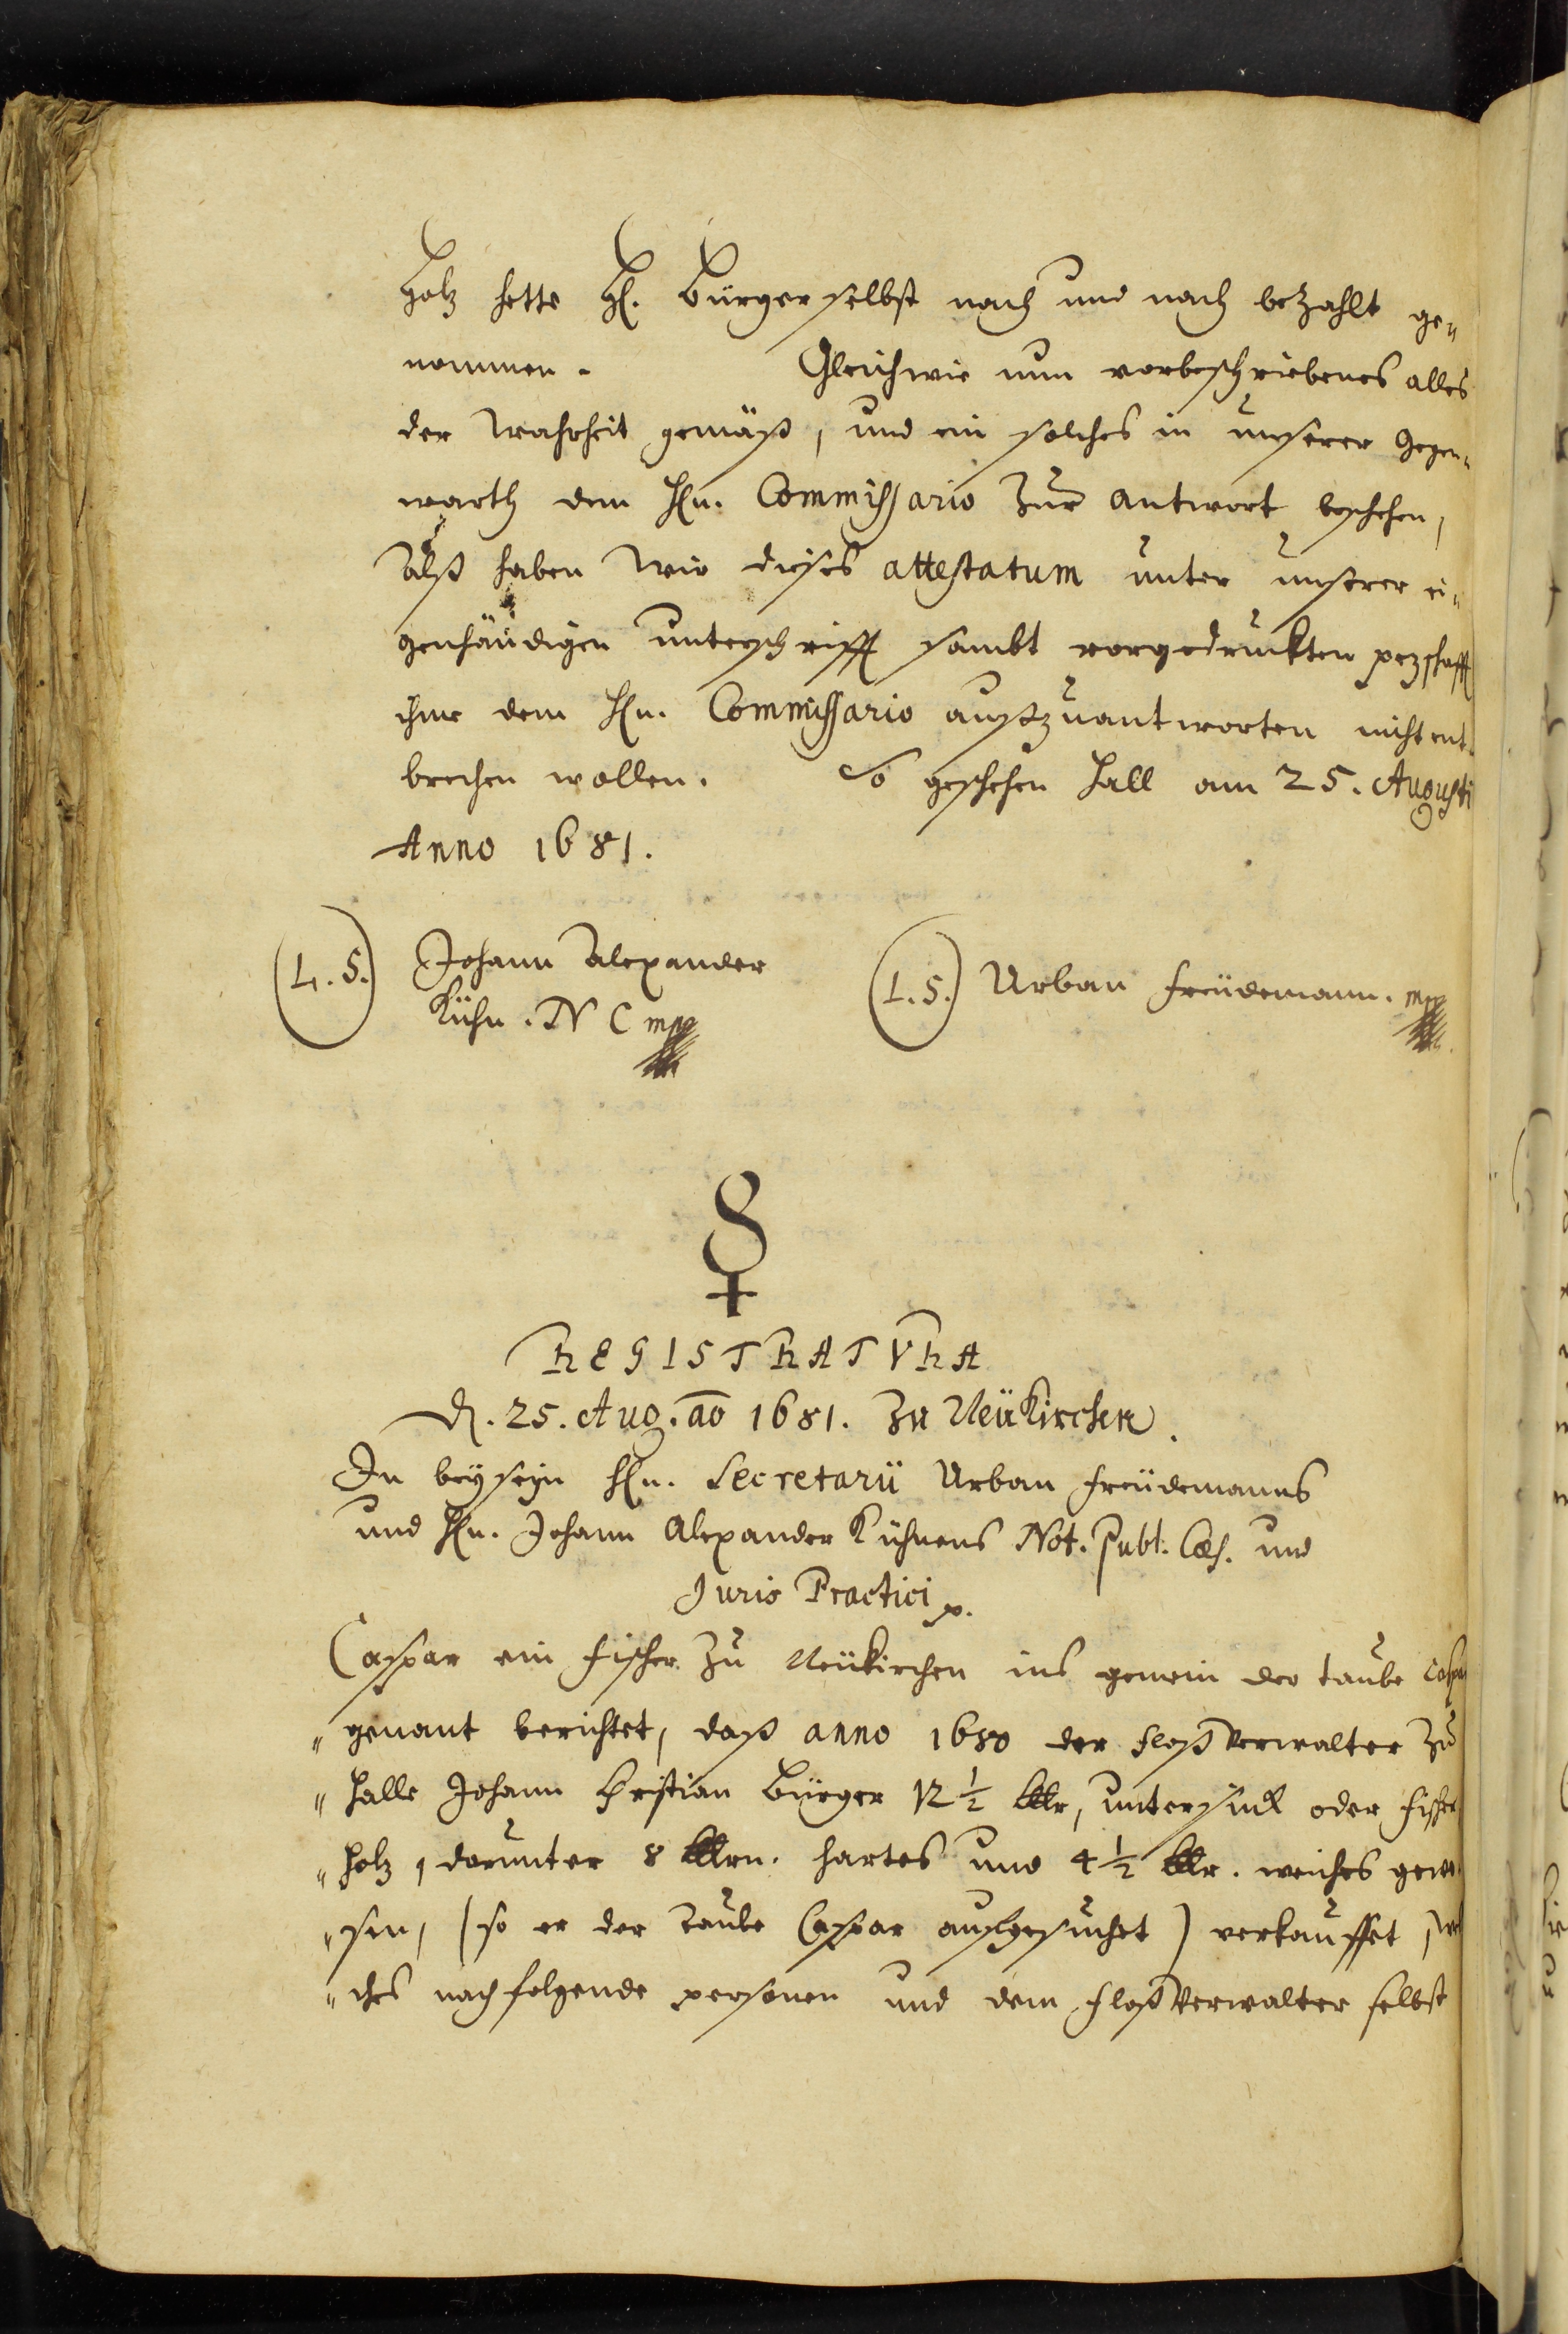 Holz hette H. Bürger selbst nach und nach bezahlt ge-
nommen. Gleichwie nun vorbeschriebenes alles
der Wahrheit gemäß, und ein solches in unserer Gegen-
warth dem Hn. Commissario zur antwort beschehen,
Alß haben Wir dieses attestatum unter unserer ei-
genhändigen unterschrifft sambt vorgedruckten pezschafft
ihme dem Hn. Commissario außzuantworten nicht ent-
brechen wollen. So geschehen Hall am 25. Augusti
Anno 1681.
(L. S.) Johann Alexander (L. S.) Urban Freüdemann. mpp
Kühn. N C mpp
☿
REGISTRATVRA
d. 25. Aug. ao 1681. Zu Neükirchen.
In beyseyn Hn. Secretarii Urban Freüdemanns
und Hn. Johann Alexander Kühnens Not. Publ. Cæs. und
Juris Practici p.
Caspar ein Fischer zu Neükirchen ins gemein der taube Caspar
" genant berichtet, daß anno 1680 der Floß Verwalter Zu
" Halle Johann Christian Bürger 12 ½ Klr, untersinck oder Fischer
" holz, darunter 8 Klrn. hartes und 4 ½ Klr. weiches gewe-
" sen, (so er der Taube Caspar ausgesuchet) verkauffet, wel
" ches nachfolgende personen und dem Floß Verwalter selbst